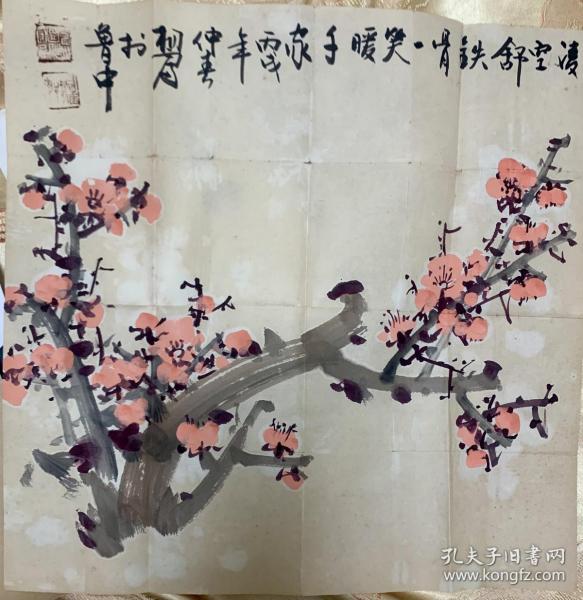 凌空舒铁骨一笑暖千家丙戌年仲春
于鲁中
孔夫子旧书网
www.kongfz.com